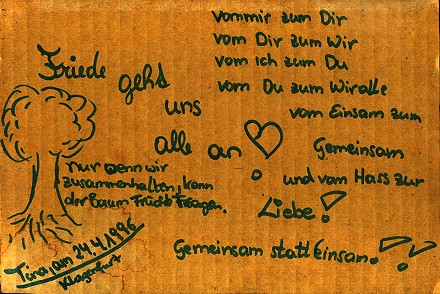 Friede geht
uns
alle an
nur wenn wir
zusammenhalten, kann
der Baum Früchte tragen.
Tina, am 24.4.1996
Klagenfurt
vom mir zum Dir
vom Dir zum Wir
vom Ich zum Du
vom Du zum Wir alle
vom Einsam zum
Gemeinsam
und vom Hass zur
Liebe!
Gemeinsam statt Einsam!!